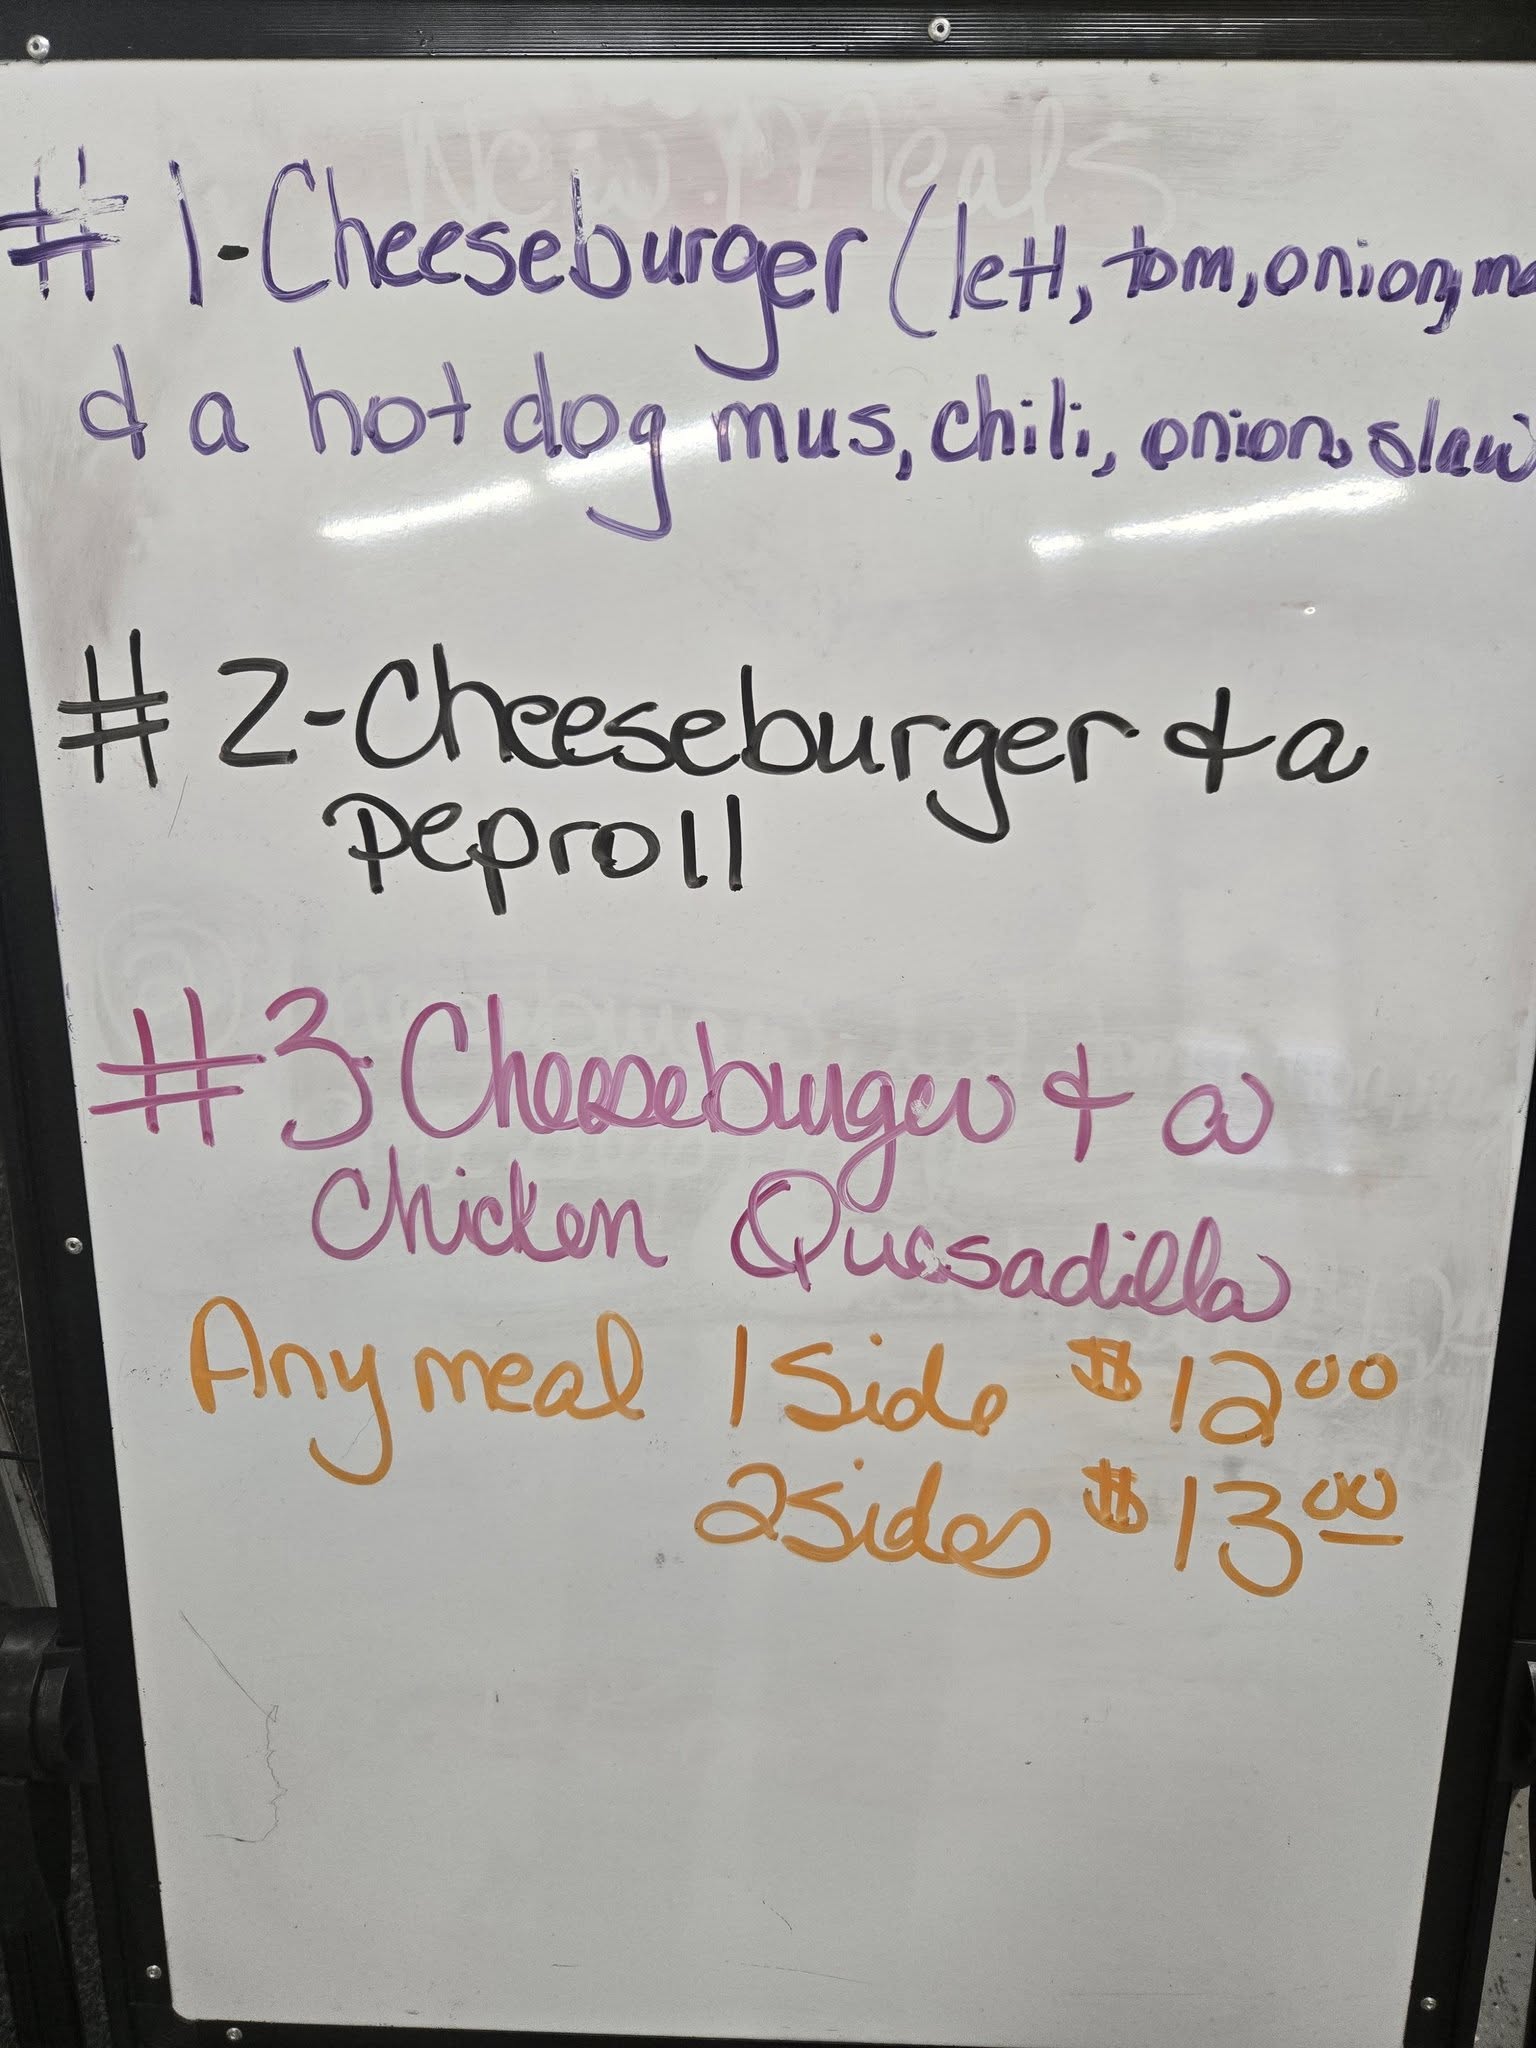 New Meals
# 1-Cheeseburger (lett, tom, onion, ma
& a hot dog mus, chili, onion, slaw
# 2-Cheeseburger & a
peproll
#3-Cheeseburger & a
Chicken Quesadilla
Any meal 1 Side $12.00
2 Sides $13.00